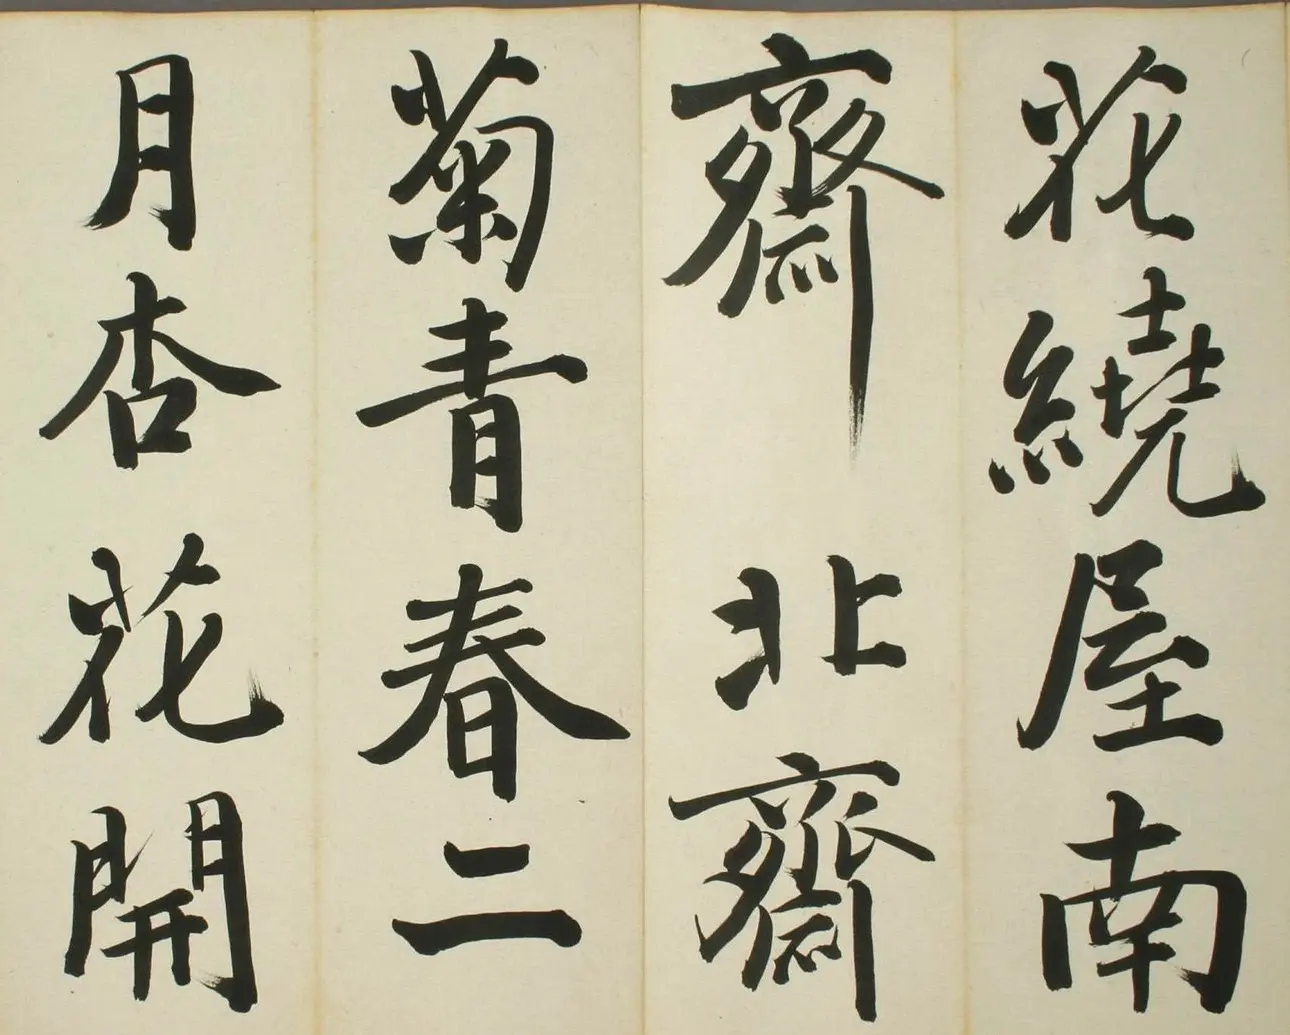 花繞屋南
齋北齋
菊青春二
月杏花開